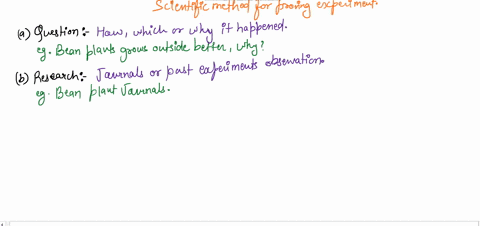 Scientific method for proving experiment
(a) Question:- How, which or why it happened.
eg. Bean plants grows outside better, why?
(b) Research:- Journals or past experiments observation.
eg. Bean plant Journals.